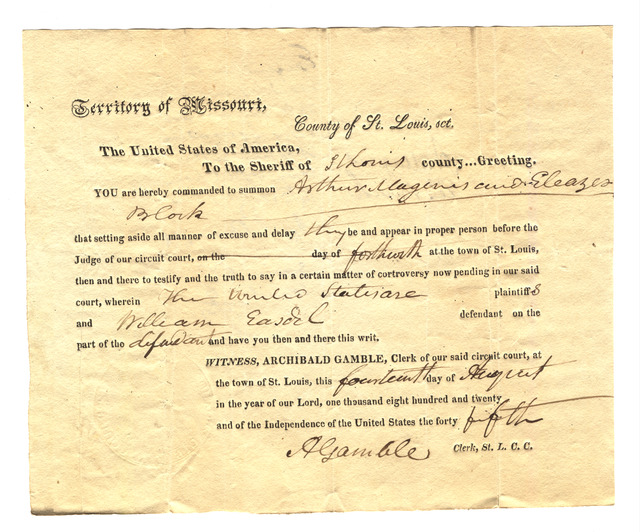 Territory of Missouri,
County of St. Louis, sct.
The United States of America,
To the Sheriff of St Louis county...Greeting.
YOU are hereby commanded to summon Arthur Magenis and Eleazer
Block
that setting aside all manner of excuse and delay they be and appear in proper person before the
Judge of our circuit court, on the day of forthwith at the town of St. Louis,
then and there to testify and the truth to say in a certain matter of controversy now pending in our said
court, wherein The United States are plaintiffs
and William Easdel defendant on the
part of the defendant and have you then and there this writ.
WITNESS, ARCHIBALD GAMBLE, Clerk of our said circuit court, at
the town of St. Louis, this fourteenth day of August
in the year of our Lord, one thousand eight hundred and twenty
and of the Independence of the United States the forty fifth
A Gamble Clerk, St. L. C. C.